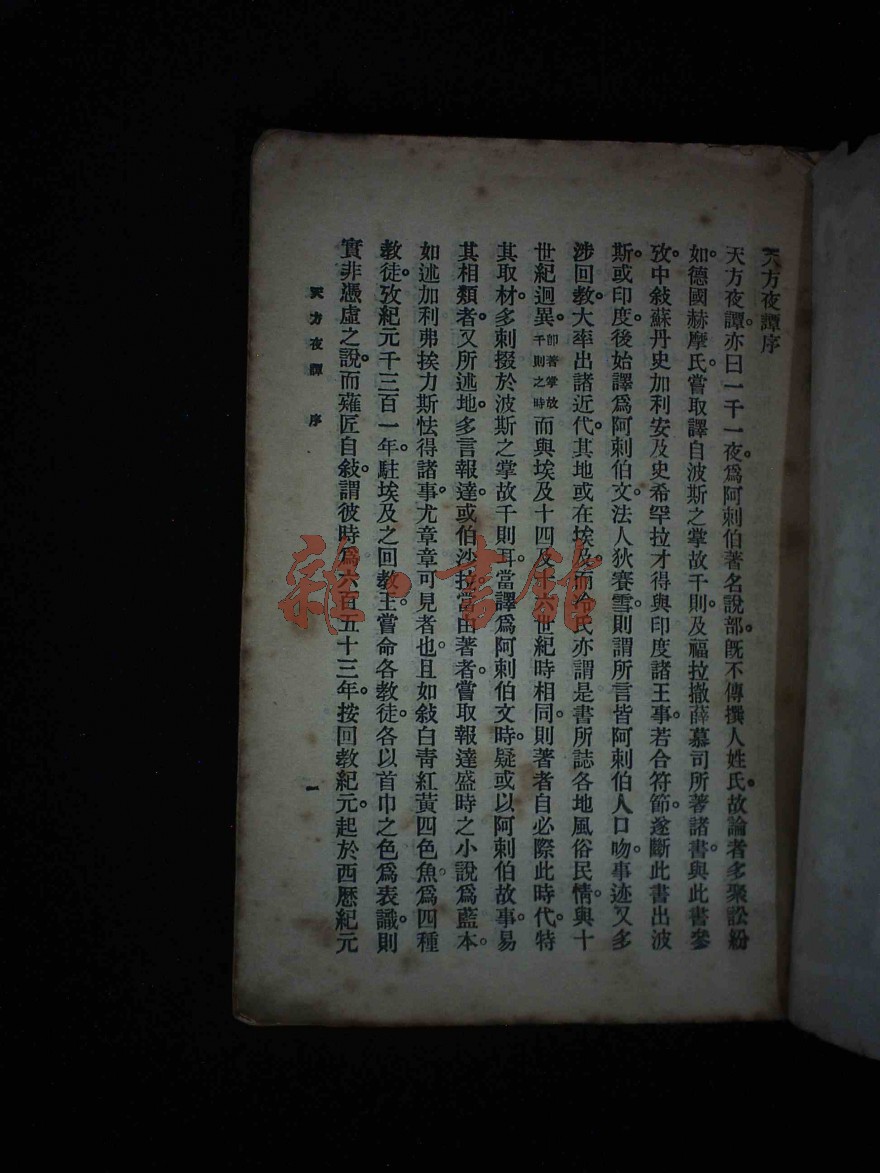 天方夜譚序
天方夜譚。亦曰一千一夜。爲阿剌伯著名說部。旣不傳撰人姓氏。故論者多聚訟紛
如。德國赫摩氏。嘗取譯自波斯之掌故千則。及福拉撤薛慕司所著諸書。與此書參
攷。中敍蘇丹史加利安及史希罕拉才得與印度諸王事。若合符節。遂斷此書出波
斯。或印度。後始譯爲阿剌伯文。法人狄賽雪。則謂所言皆阿剌伯人口吻。事迹又多
涉回敎。大率出諸近代。其地或在埃及。而冷氏亦謂是書所誌各地風俗民情。與十
世紀迥異。卽著掌故千則之時而與埃及十四及十六世紀時相同。則著者自必際此時代。特
其取材。多刺掇於波斯之掌故千則耳。當譯爲阿剌伯文時。疑或以阿剌伯故事易
其相類者。又所述地。多言報達。或伯沙拉。當由著者。嘗取報達盛時之小說爲藍本。
如述加利弗挨力斯怯得諸事。尤章章可見者也。且如敍白靑紅黃四色魚。爲四種
敎徒。攷紀元千三百一年。駐埃及之回敎王。嘗命各敎徒。各以首巾之色爲表識。則
實非憑虛之說。而薙匠自敍。謂彼時爲六百五十三年。按回敎紀元。起於西歷紀元
天方夜譚 序
一
雜·書館